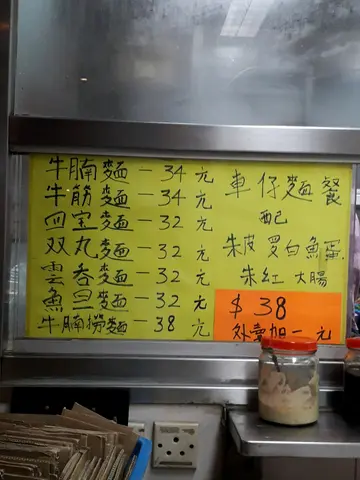 牛腩麵 - 34 元
牛筋麵 - 34 元
四宝麵 - 32 元
双丸麵 - 32 元
雲吞麵 - 32 元
魚旦麵 - 32 元
牛腩撈麵 - 38 元
車仔麵餐
配
朱皮 罗白 魚蛋
朱紅 大腸
$ 38
外賣加一元